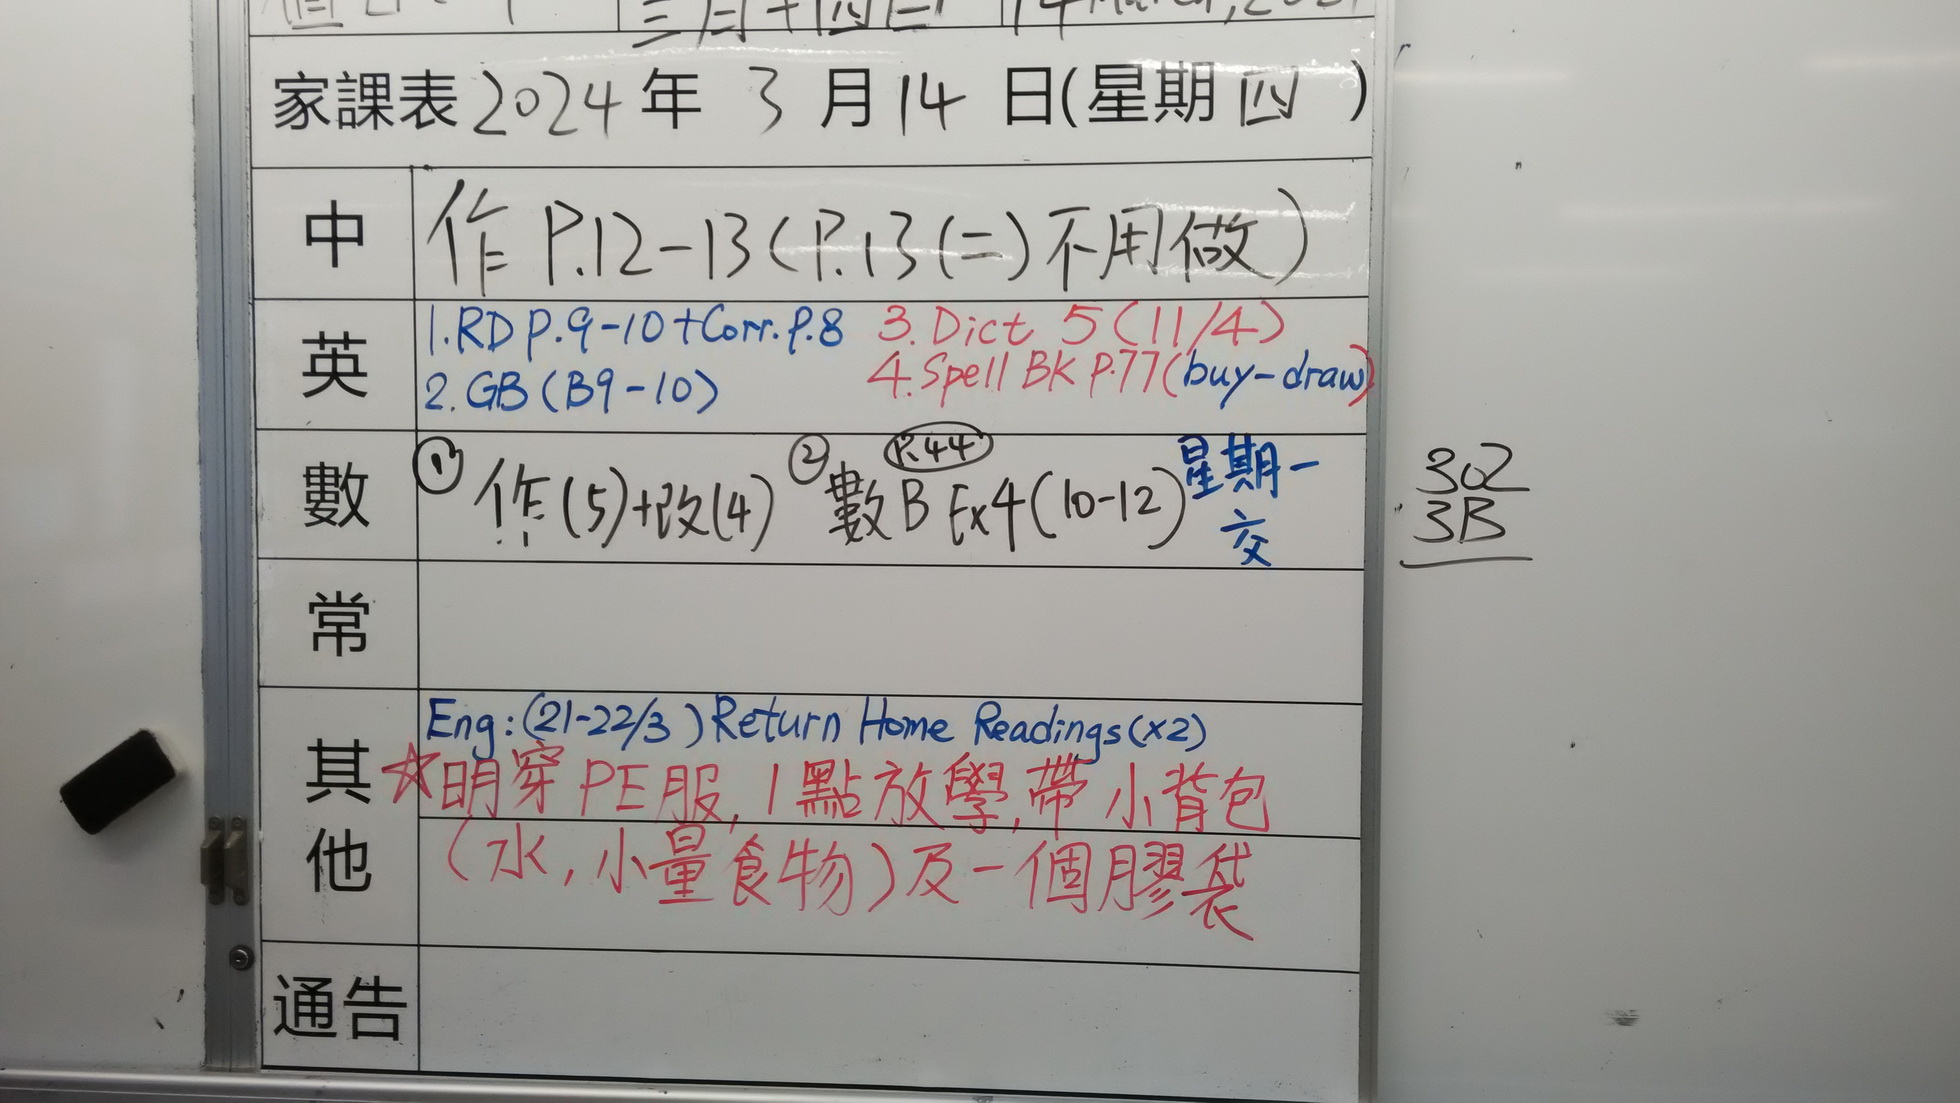 三月十四日 14 March, 202
家課表 2024 年 3 月 14 日(星期 四 )
中 作 P.12-13 (P.13 (二) 不用做)
英 1. RD P.9-10 + Corr. P.8 3. Dict 5 (11/4)
2. GB (B9-10) 4. Spell BK P.77 (buy-draw)
數 ① 作(5)+改(4) ② 數B Ex4 (10-12) 星期一
P.44
交
302
3B
常
其他 Eng: (21-22/3) Return Home Readings (x2)
☆明穿PE服, 1點放學, 帶小背包
(水, 小量食物) 及一個膠袋
通告